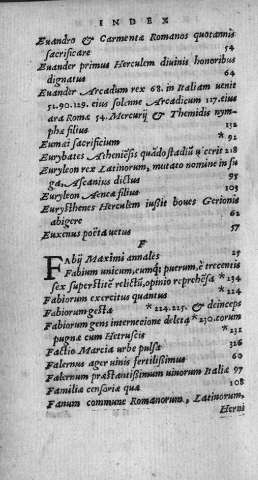 INDEX
Euandro & Carmentæ Romanos quotannis
sacrificare 54
Euander primus Herculem diuinis honoribus
dignatus 64
Euander Arcadum rex 68. in Italiam uenit
51.90.129. eius solenne Arcadicum 117. eius
ara Romæ 54. Mercurij & Themidis nym-
phæ filius 132
Eumæi sacrificium * 92
Eurybates Atheniẽsis quãdo stadiũ uicerit 218
Euryleon rex Latinorum, mutato nomine in fu
ga, Ascanius dictus 95
Euryleon Aeneæ filius 103
Eurysthenes Herculem iußit boues Gerionis
abigere 62
Euxenus poëta uetus 57
F
FAbij Maximi annales 29
Fabium unicum, eumq; puerum, è trecentis
sex superstitẽ relictũ, opinio reprehẽsa * 234
Fabiorum exercitus quantus * 224
Fabiorum gesta * 224.225. & deinceps
Fabiorum gens internecione deleta * 230. eorum
pugnæ cum Hetruscis * 232
Factio Marcia urbe pulsa 326
Falernus ager uinis fertilißimus 60
Falernum præstantißimum uinorum Italiæ 97
Familiæ censoriæ quæ 108
Fanum commune Romanorum, Latinorum,
Herni